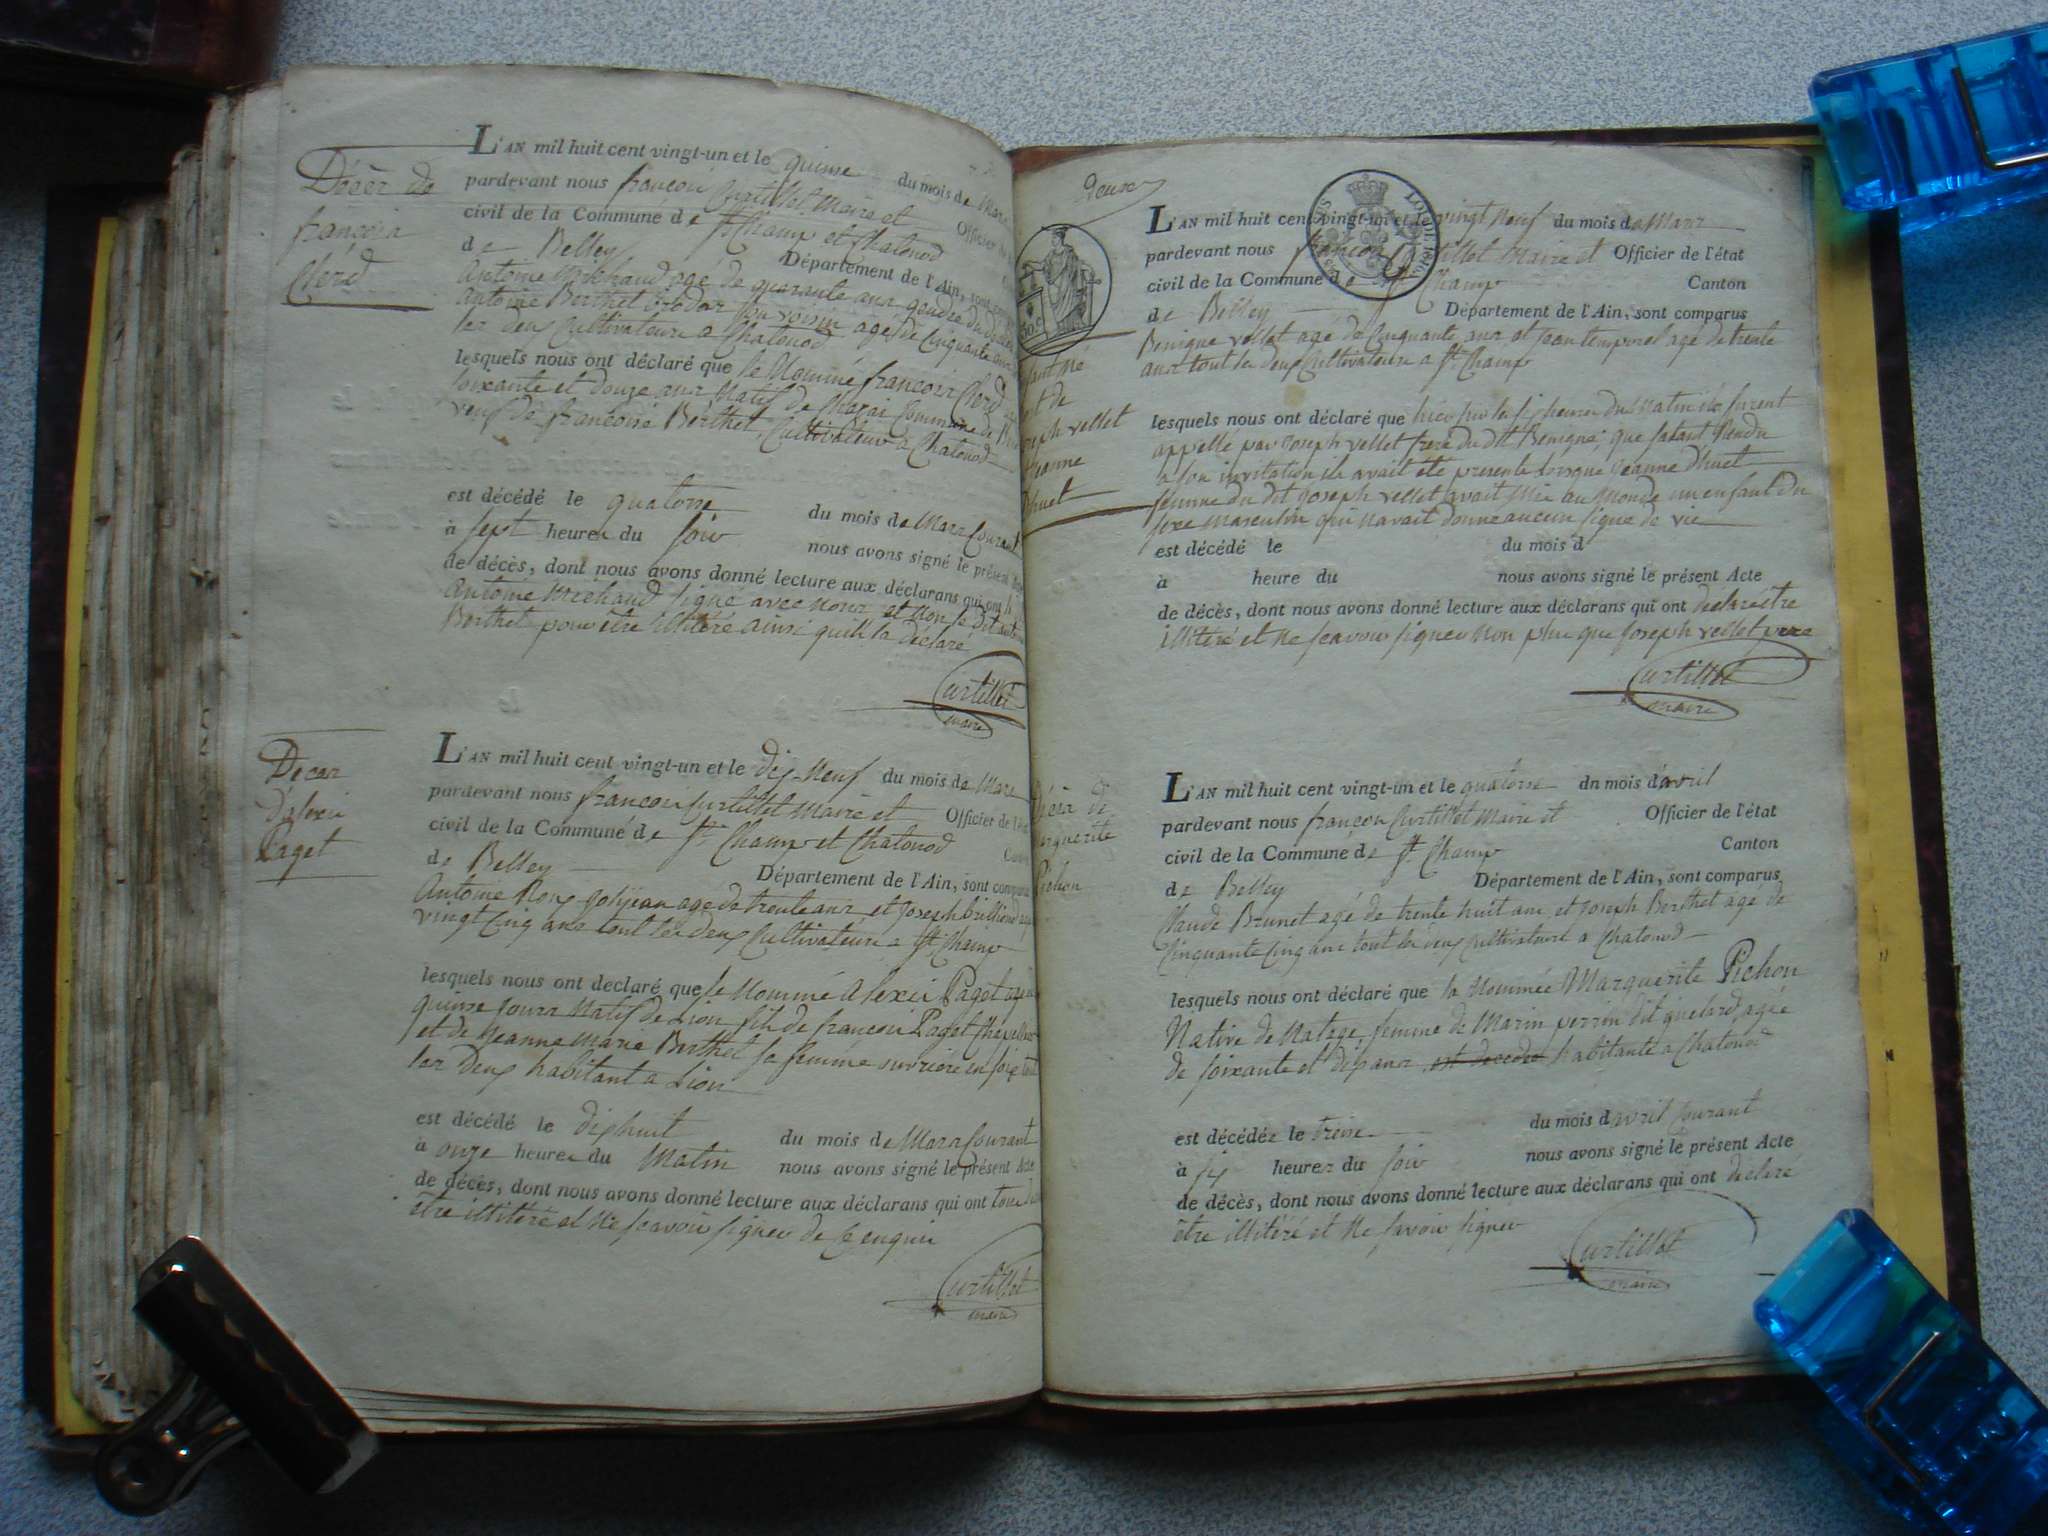 Décèr de
françoir
Cherd
L'AN mil huit cent vingt-un et le quinse du mois de Marr
pardevant nous françoir Curtillet Maire et Officier
civil de la Commune de St Champ et Chatonod
de Belley Département de l'Ain, sont
Antoine Michaud agé de quarante anr gendre du
Antoine Berthet son voisin agé de Cinquante
ler deux Cultivateurr a Chatonod
lesquels nous ont déclaré que le Nommé françoir Cherd
soixante et douze anr Natif de Commune de
veuf de françoise Berthet Cultivateur a Chatonod
est décédé le quatorse du mois de Marr Courant
à sept heurer du soir nous avons signé le présent
de décès, dont nous avons donné lecture aux déclarans qui ont
Antoine Michaud signé avec nour et non le Dit
Berthet pour être illitéré ainsi qu'il la declaré
Curtillet
maire
Decer
d'alexir
Paget
L'AN mil huit cent vingt-un et le dix Neuf du mois de Marr
pardevant nous françoir Curtillet Maire et Officier de l'état
civil de la Commune de St Champ et Chatonod
de Belley Département de l'Ain, sont comparus
Antoine Roux agé de trente anr et Joseph
vingt Cinq anr tout ler deux Cultivateurr a St Champ
lesquels nous ont déclaré que le Nommé Alexir Paget
quinse jourr Natif de Lion fils de françoir Paget
et de Jeanne Marie Berthet sa femme ouvriere en soie
ler Deux habitant a Lion
est décédé le dixhuit du mois de Marr Courant
à onze heurer du Matin nous avons signé le présent Acte
de décès, dont nous avons donné lecture aux déclarans qui ont
être illitéré et ne scavoir signer de ce enquir
Curtillet
maire
deuxe
LOI
50 C
Joseph vellet
Jeanne
Dhuet
L'AN mil huit cent vingt-un et le vingt Neuf du mois de Marr
pardevant nous françoir Curtillet Maire et Officier de l'état
civil de la Commune de St Champ Canton
de Belley Département de l'Ain, sont comparus
Benigne vellet agé de Cinquante anr et Jean temporel agé de trente
anr tout ler deux Cultivateurr a St Champ
lesquels nous ont déclaré que hier sur ler six heurer du Matin ils furent
appellé par Joseph vellet frere du dit Benigne, que s'étant Rendu
a son invitation ils avait été présente lorsque Jeanne Dhuet
femme du dit Joseph vellet avait Mis au Monde un enfant du
sexe masculin qui n'avait donné aucun signe de vie
est décédé le du mois d
à heure du nous avons signé le présent Acte
de décès, dont nous avons donné lecture aux déclarans qui ont declaré être
illitéré et ne scavoir signer non plus que Joseph vellet pere
Curtillet
maire
Décèr de
Marguerite
Pichon
L'AN mil huit cent vingt-un et le quatorse dn mois d'avril
pardevant nous françoir Curtillet Maire et Officier de l'état
civil de la Commune de St Champ Canton
de Belley Département de l'Ain, sont comparus
Claude Brunet agé de trente huit anr et Joseph Berthet agé de
Cinquante Cinq anr tout ler deux Cultivateurr a Chatonod
lesquels nous ont déclaré que la Nommée Marguerite Pichon
Native de Natage, femme de Marin perrin dit quelard, agée
de soixante et dix anr est decedee habitante a Chatonod
est décédée le treise du mois d'avril Courant
à six heurer du soir nous avons signé le présent Acte
de décès, dont nous avons donné lecture aux déclarans qui ont declaré
être illitéré et ne savoir signer
Curtillet
maire